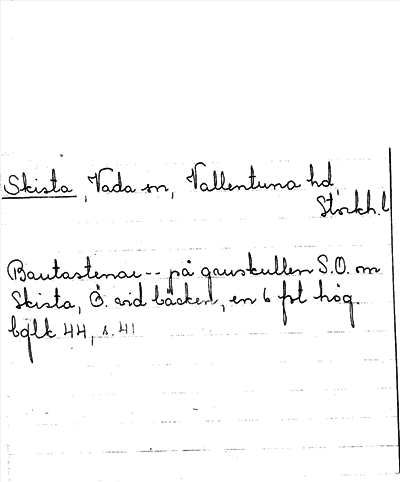 Skista, Vada sn, Vallentuna hd,
Stockh.l
Bautastenar -- på gavskullen S.O. om
Skista, Ö. vid bäcken, en 6 fot hög.
bglk 44, s. 41